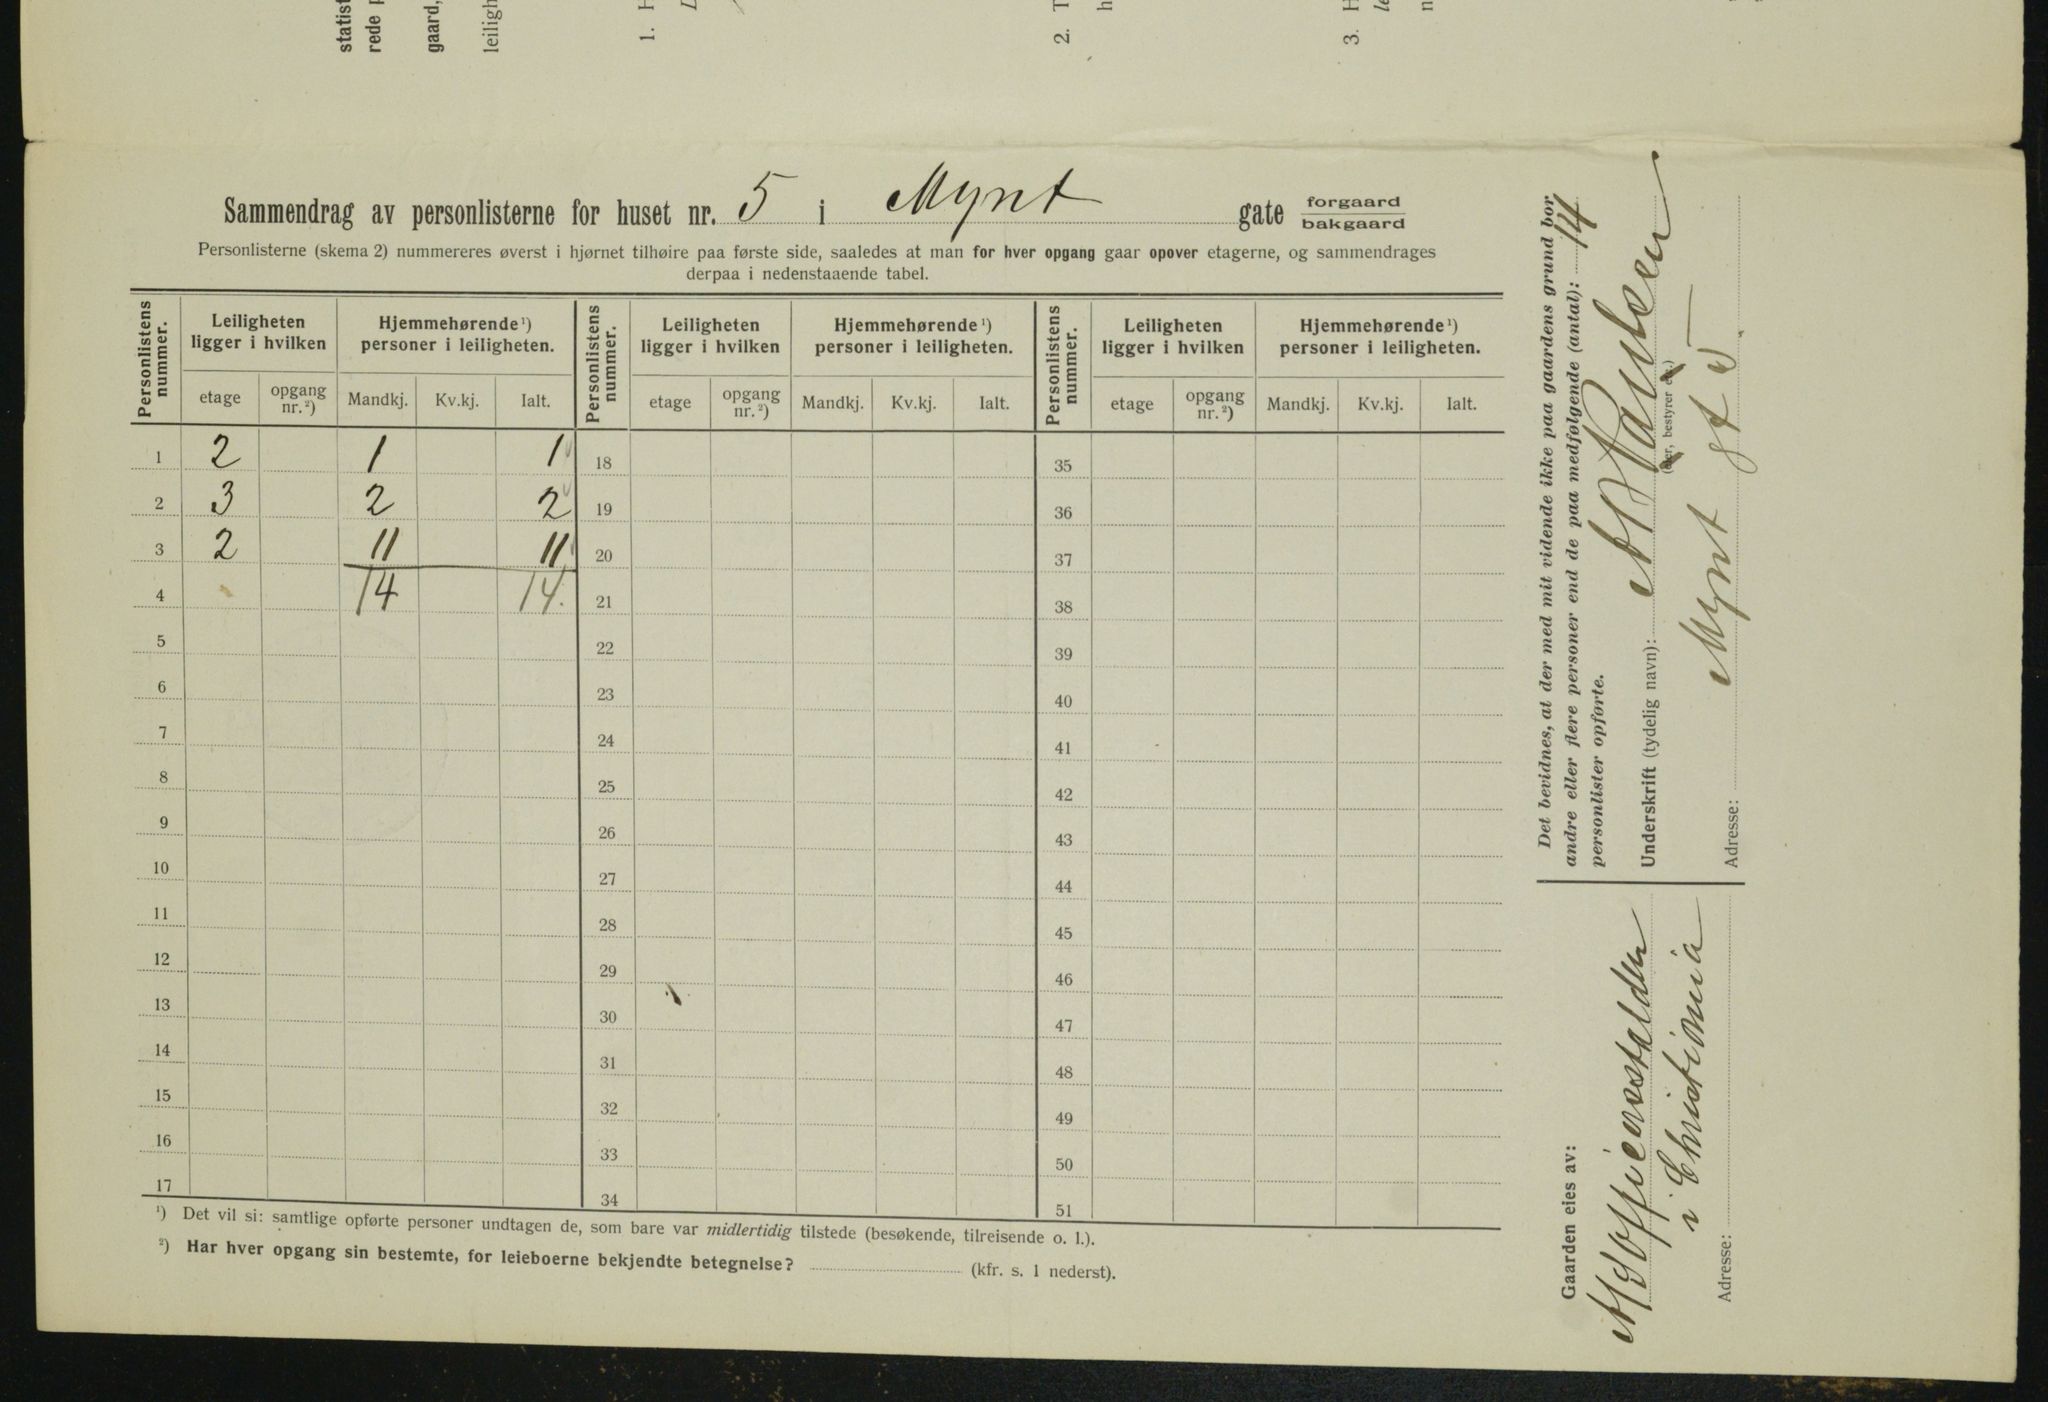 statist
rede p
gaard,
leiligh
1. H
L
2. T
h
3. H
le
n
Sammendrag av personlisterne for huset nr. 5 i Mynt gate forgaard
bakgaard
Personlisterne (skema 2) nummereres øverst i hjørnet tilhøire paa første side, saaledes at man for hver opgang gaar opover etagerne, og sammendrages
derpaa i nedenstaaende tabel.
Personlistens nummer. Leiligheten ligger i hvilken Hjemmehørende ¹) personer i leiligheten. Personlistens nummer. Leiligheten ligger i hvilken Hjemmehørende ¹) personer i leiligheten. Personlistens nummer. Leiligheten ligger i hvilken Hjemmehørende ¹) personer i leiligheten.
etage opgang nr. ²) Mandkj. Kv.kj. Ialt. etage opgang nr. ²) Mandkj. Kv.kj. Ialt. etage opgang nr. ²) Mandkj. Kv.kj. Ialt.
1 2 1 1 18 35
2 3 2 2 19 36
3 2 11 11 20 37
4 14 14. 21 38
5 22 39
6 23 40
7 24 41
8 25 42
9 26 43
10 27 44
11 28 45
12 29 46
13 30 47
14 31 48
15 32 49
16 33 50
17 34 51
¹) Det vil si: samtlige opførte personer undtagen de, som bare var midlertidig tilstede (besøkende, tilreisende o. l.).
²) Har hver opgang sin bestemte, for leieboerne bekjendte betegnelse? (kfr. s. 1 nederst).
Det bevidnes, at der med mit vidende ikke paa gaardens grund bor
andre eller flere personer end de paa medfølgende (antal): 14
personlister opførte.
Underskrift (tydelig navn):
(eier, bestyrer etc.)
Adresse: Mynt gt 5
Gaarden eies av:
i Christiania
Adresse: